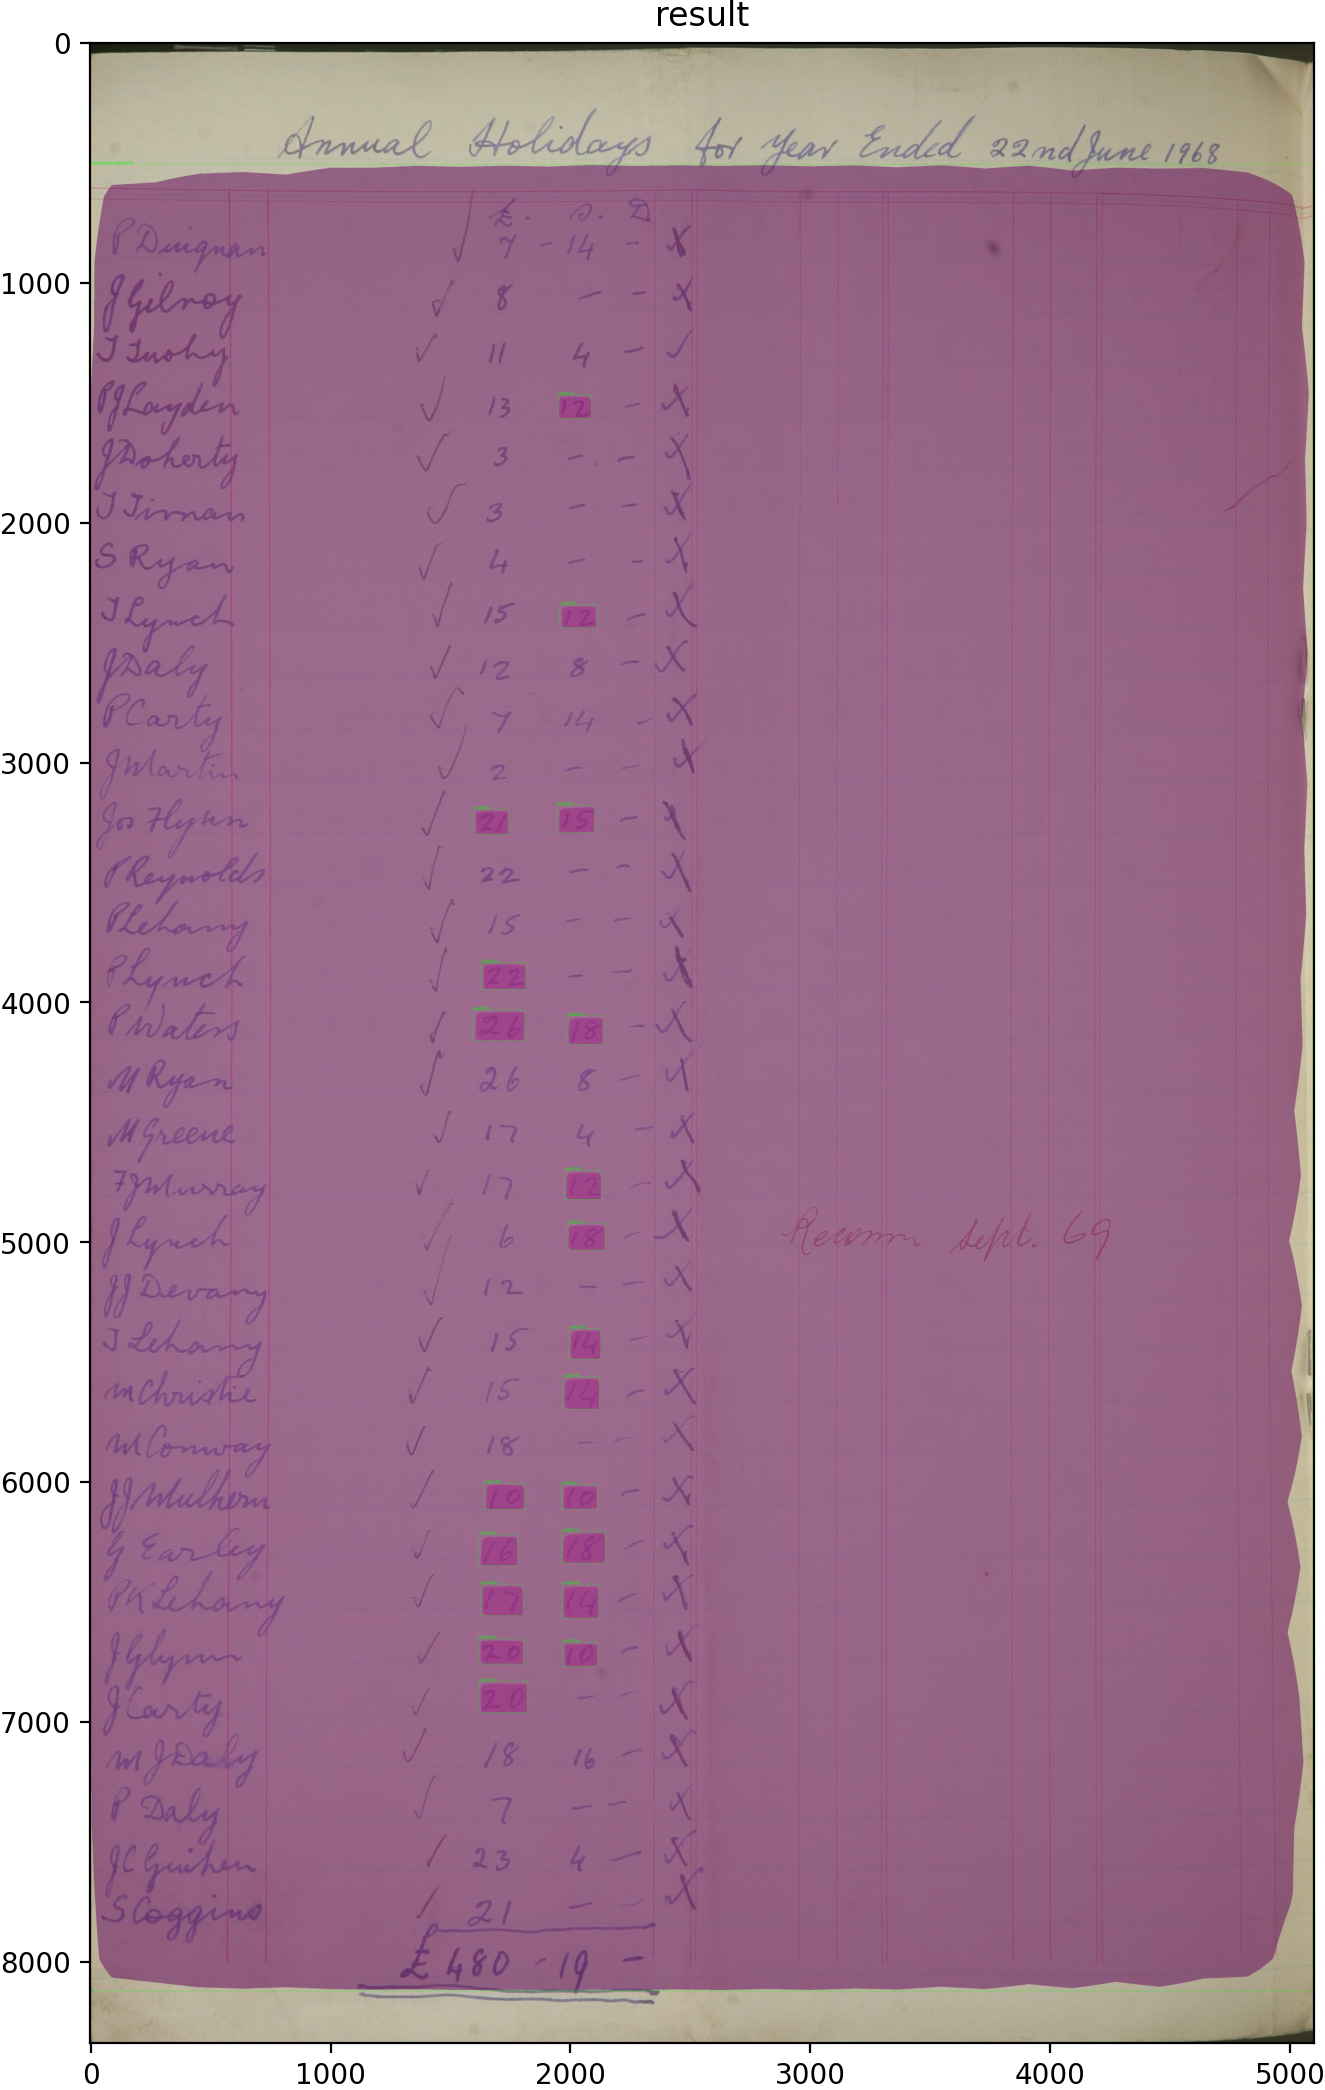 result
Annual Holidays for Year Ended 22nd June 1968
£. s. D
P Duignan √ 7 - 14 - X
J Gilroy √ 8 - - X
T Tuohy √ 11 4 - √
PJ Layden √ 13 12 - X
J Doherty √ 3 - - X
T Tirnan √ 3 - - X
S Ryan √ 4 - - X
T Lynch √ 15 12 - X
J Daly √ 12 8 - X
P Carty √ 7 14 - X
J Martin √ 2 - - X
Jos Flynn √ 21 15 - X
P Reynolds √ 22 - - X
P Lehany √ 15 - - X
P Lynch √ 22 - - X
P Waters √ 26 18 - X
M Ryan √ 26 8 - X
M Greene √ 17 4 - X
FJ Murray √ 17 12 - X
J Lynch √ 6 18 - X sept. 69
JJ Devany √ 12 - - X
T Lehany √ 15 14 - X
M Christie √ 15 14 - X
M Conway √ 18 - - X
JJ Mulhern √ 10 10 - X
G Earley √ 16 18 - X
PK Lehany √ 17 14 - X
J Glynn √ 20 10 - X
J Carty √ 20 - - X
M J Daly √ 18 16 - X
P Daly √ 7 - - X
JC Guihen √ 23 4 - X
S Coggins √ 21 - - X
£480 - 19 -
0
1000
2000
3000
4000
5000
6000
7000
8000
0 1000 2000 3000 4000 5000